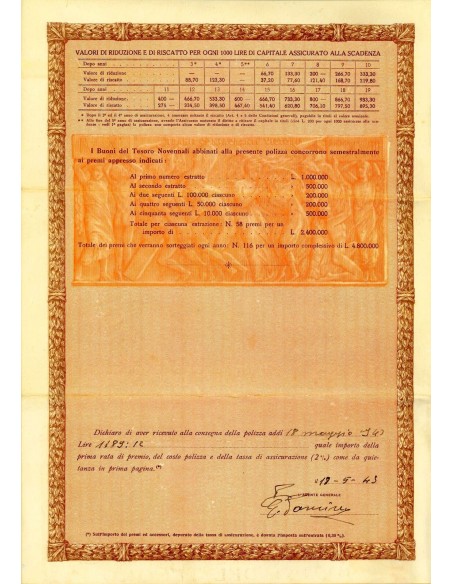 VALORI DI RIDUZIONE E DI RISCATTO PER OGNI 1000 LIRE DI CAPITALE ASSICURATO ALLA SCADENZA
Dopo anni 3* 4* 5** 6 7 8 9 10
Valore di riduzione — — — 66,70 133,30 200 — 266,70 333,30
Valore di riscatto 88,70 123,30 — 37,30 77,60 121,60 168,70 219,80
Dopo anni 11 12 13 14 15 16 17 18 19
Valore di riduzione 400 — 466,70 533,30 600 — 666,70 733,30 800 — 866,70 933,30
Valore di riscatto 275 — 334,20 398,10 467,40 541,60 620,80 706,10 797,20 895,30
I Buoni del Tesoro Novennali abbinati alla presente polizza concorrono semestralmente
ai premi appresso indicati:
Al primo numero estratto L. 1.000.000
Al secondo estratto » 500.000
Ai due seguenti L. 100.000 ciascuno » 200.000
Ai quattro seguenti L. 50.000 ciascuno » 200.000
Ai cinquanta seguenti L. 10.000 ciascuno » 500.000
Totale per ciascuna estrazione: N. 58 premi per un
importo di L. 2.400.000
Totale dei premi che verranno sorteggiati ogni anno: N. 116 per un importo complessivo di L. 4.800.000
Dichiaro di aver ricevuto alla consegna della polizza addì 18 maggio
Lire 1689:12 quale importo della
prima rata di premio, del costo polizza e della tassa di assicurazione (2%) come da quie-
tanza in prima pagina.(*)
-5-43
L'AGENTE GENERALE
(*) Sull'importo dei premi ed accessori, depurato della tassa di assicurazione, è dovuta l'imposta sull'entrata